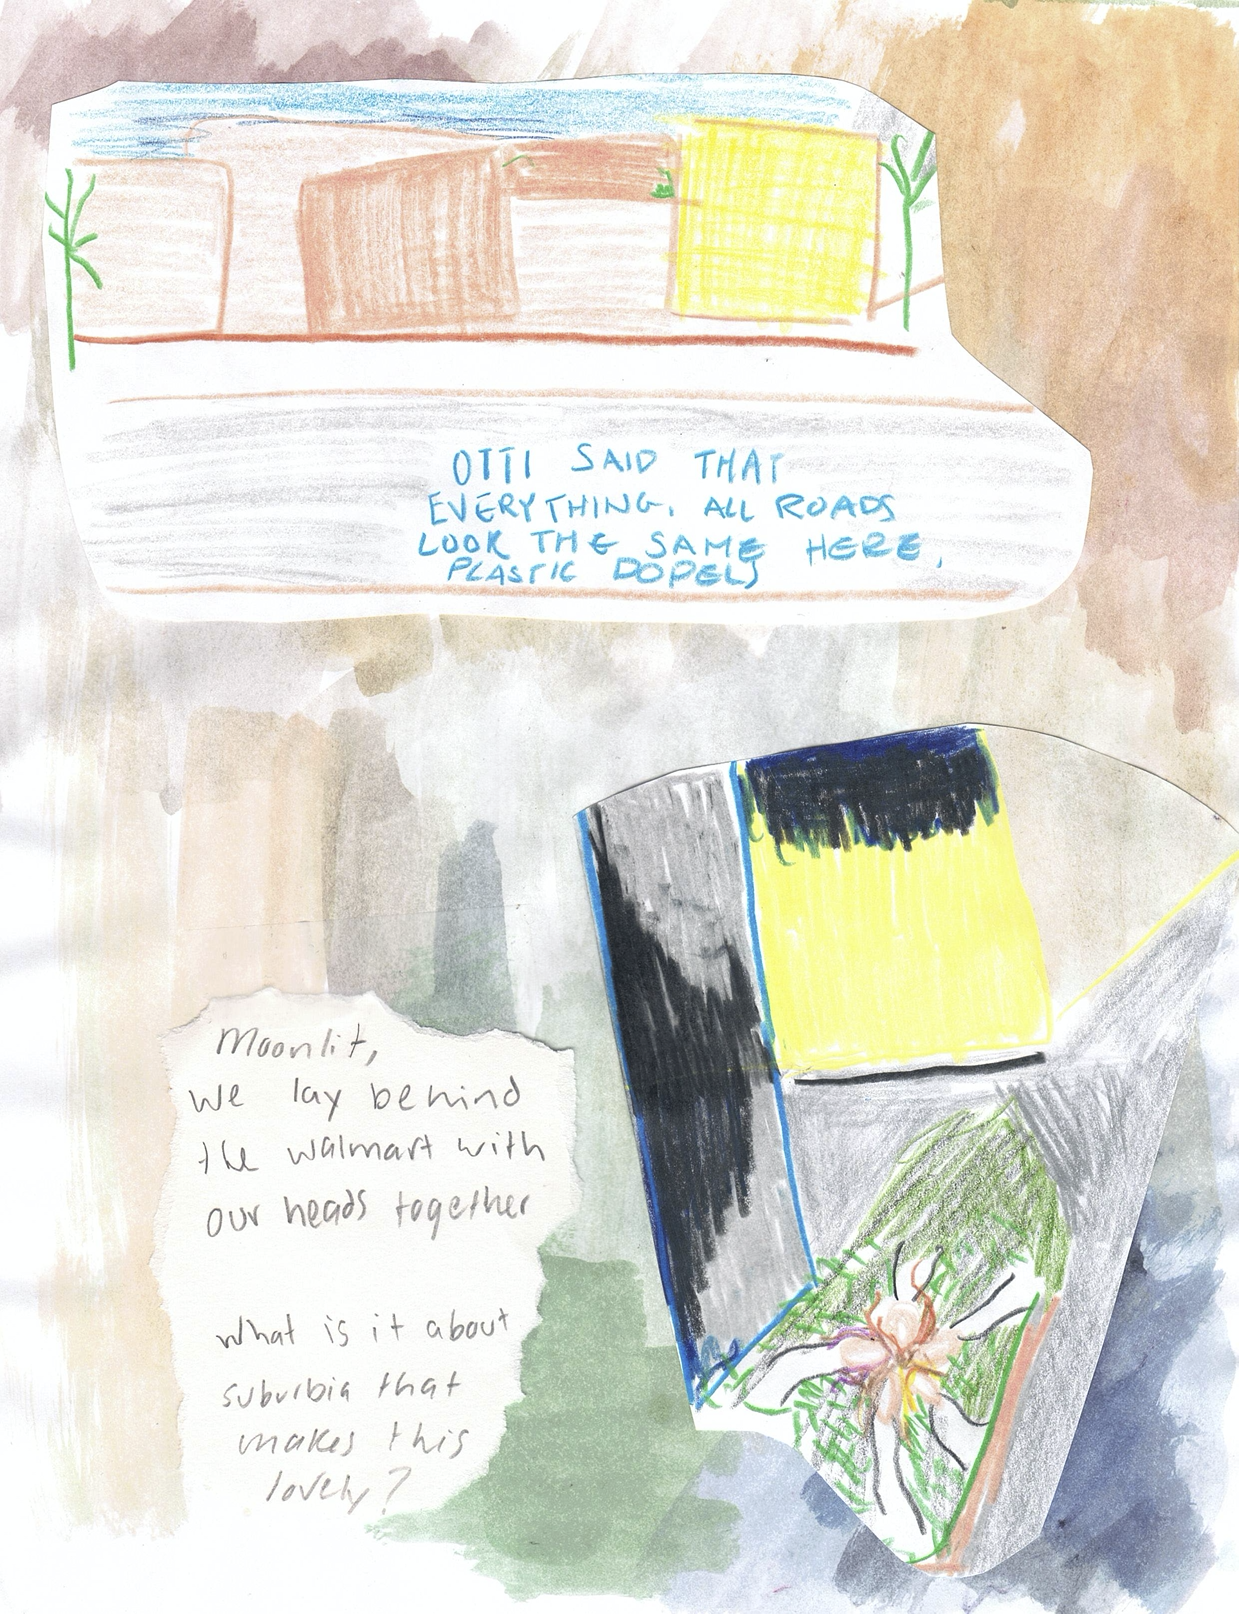 OTTI SAID THAT
EVERYTHING. ALL ROADS
LOOK THE SAME HERE,
PLASTIC DOPELS
Moonlit,
we lay behind
the walmart with
our heads together
what is it about
suburbia that
makes this
lovely?